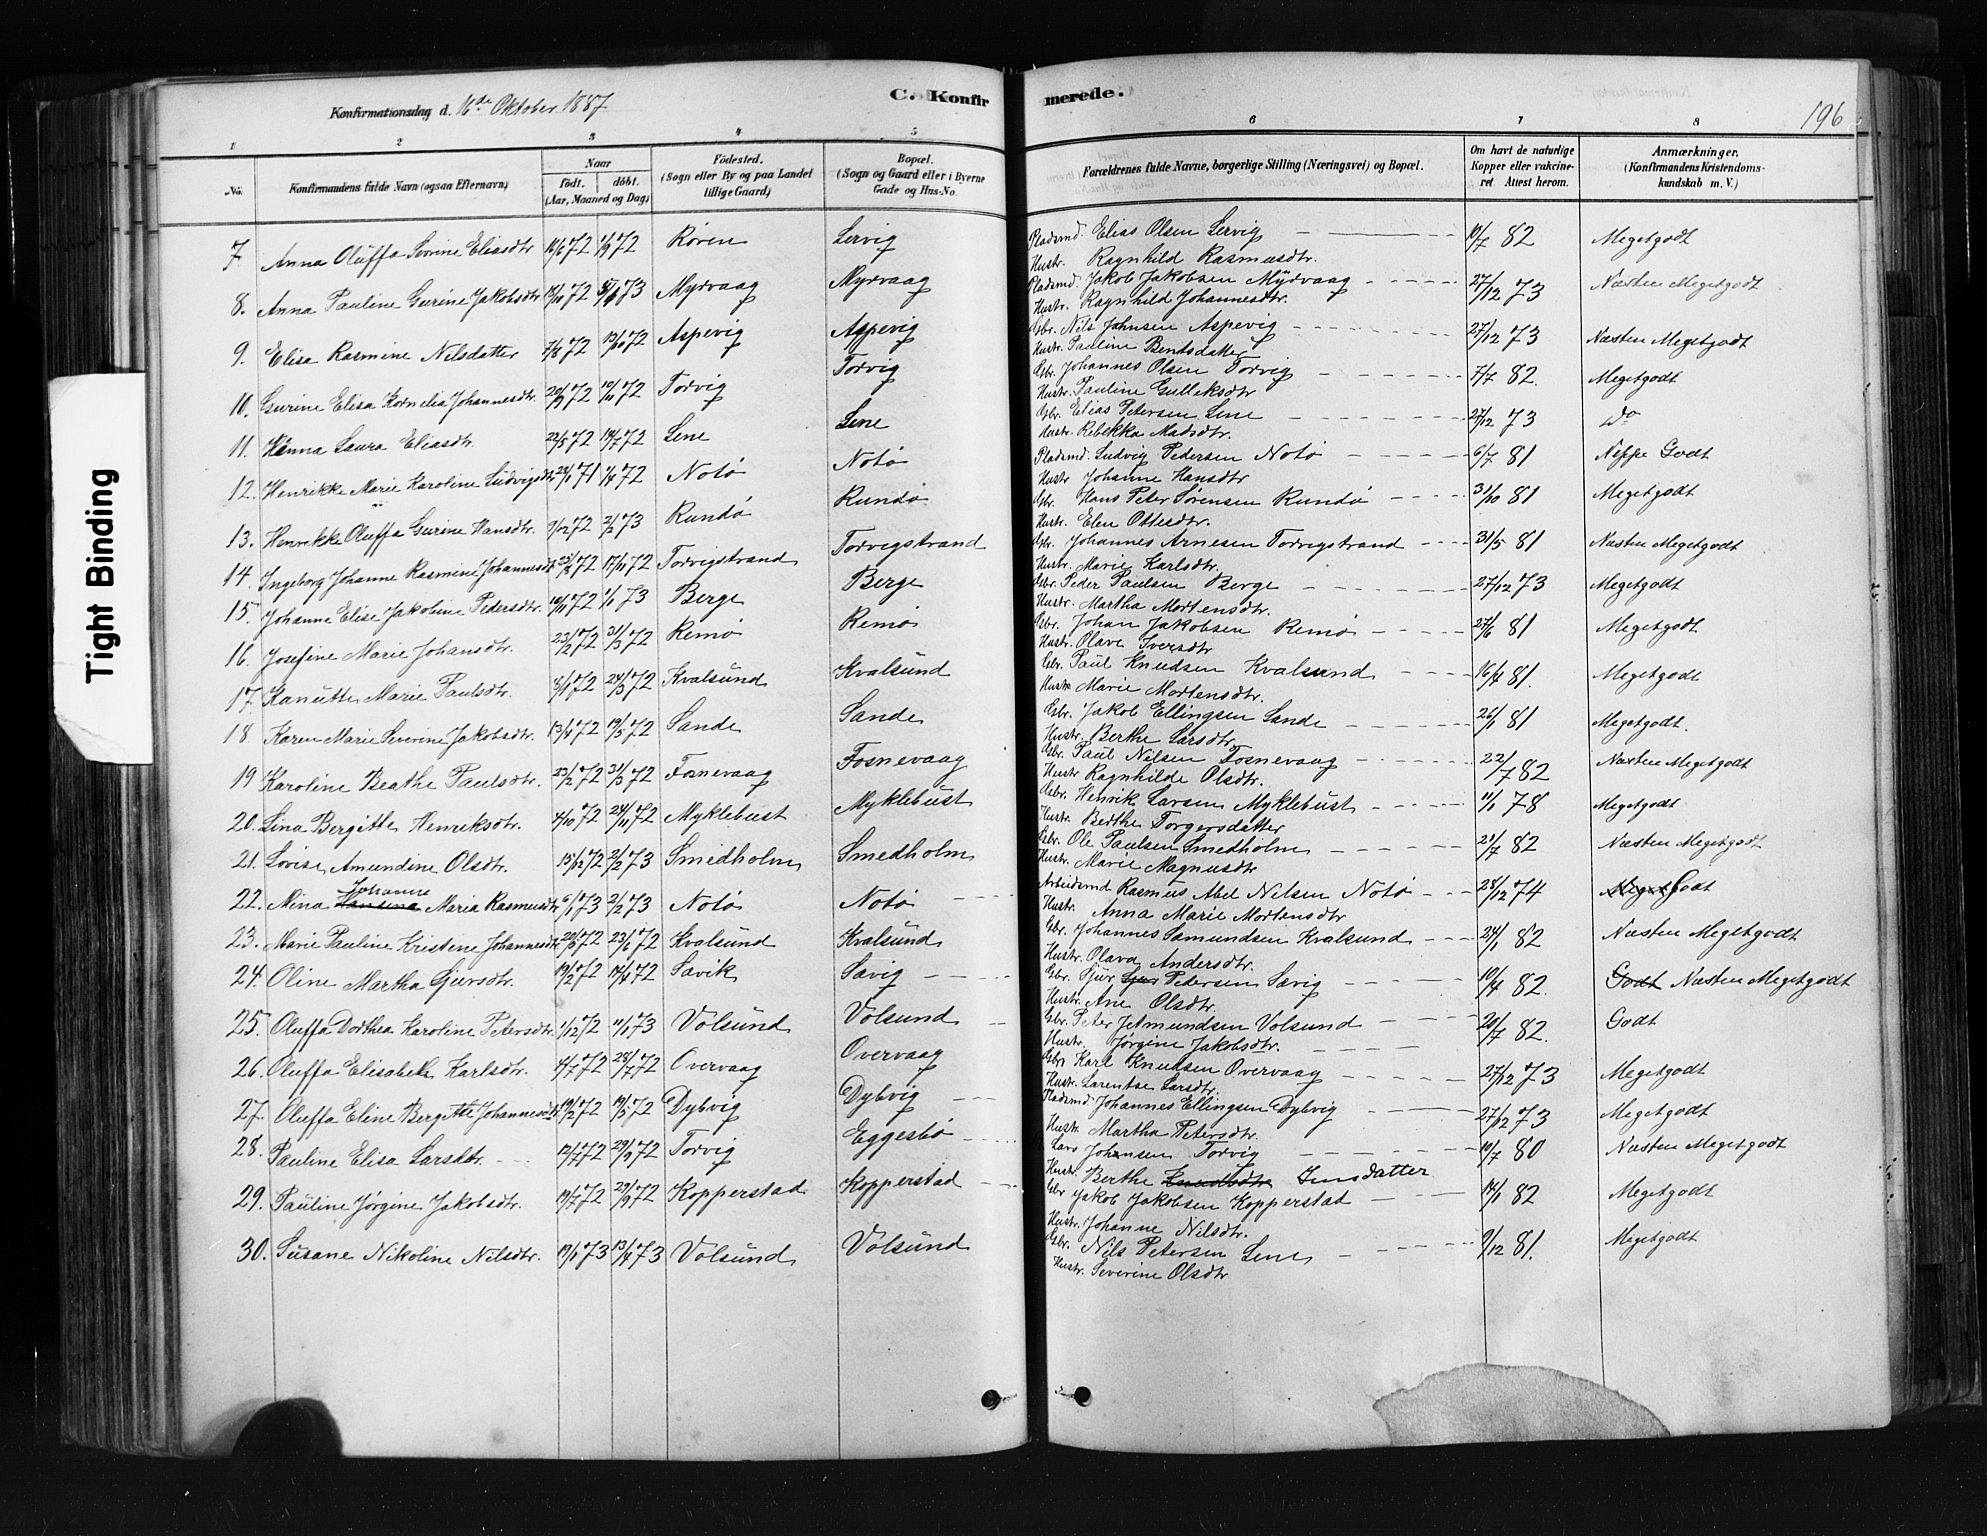 Tight Binding
Konfirmationsdag d. 16de Oktober 1887
C. Konfir
merede.
196
1 2 3 4 5
6 7 8
No.
Konfirmandens fulde Navn (ogsaa Efternavn)
Naar
født. døbt.
(Aar, Maaned og Dag)
Fødested.
(Sogn eller By og paa Landet
tillige Gaard)
Bopæl.
(Sogn og Gaard eller i Byerne
Gade og Hus-No.
Forældrenes fulde Navne, borgerlige Stilling (Næringsvei) og Bopæl.
Om havt de naturlige
Kopper eller vakcine-
ret. Attest herom.
Anmærkninger.
(Konfirmandens Kristendoms-
kundskab m. V.)
7. Anna Oluffa Severine Eliasdtr 72 1/9 72 Røren Lervig
Pladsmd. Elias Olsen Lervig 19/7 82 Megetgodt
Hustr. Ragnhild Rasmusdtr.
8. Anna Pauline Gurine Jakobsdtr 72 73 Myrvaag Myrvaag
Pladsmd. Jakob Jakobsen Myrvaag 27/12 73 Næsten Megetgodt
Hustr. Ragnhild Johannesdtr.
9. Elisa Rasmine Nilsdatter 7/8 72 13/10 72 Aspevig Aspevig
Gbr. Nils Johnsen Aspevig 27/12 73 Næsten Megetgodt
Hustr. Pauline Bentsdatter
10. Gurine Elisa Kornelia Johannesdtr 20/9 72 10/11 72 Torvig Torvig
Gbr. Johannes Olsen Torvig 7/7 82. Megetgodt
Hustr. Pauline Gulleksdtr
11. Hanna Laura Eliasdtr. 22/5 72 14/7 72 Lene Lene
Gbr. Elias Petersen Lene 27/12 73 do
Hustr. Rebekka Madsdtr.
12. Henrikke Marie Karoline Ludvigsdtr 71 1/4 72 Notø Notø
Pladsmd. Ludvig Pedersen Notø 6/7 81 Neppe Godt
Hustr Johanne Hansdtr
13. Henrikke Oluffa Gurine Hansdtr. 9/12 72 2/2 73 Rundø Rundø
Gbr. Hans Peter Sørensen Rundø 31/10 81 Megetgodt
Hustr. Elen Ottesdtr.
14. Ingeborg Johanne Rasmine Johannesdtr 72 17/11 72 Torvigstrand Torvigstrand
Gbr. Johannes Arnesen Torvigstrand 31/5 81 Næsten Megetgodt
Hustr. Marie Karlsdtr.
15. Johanne Elise Jakobine Pedersdtr. 10/11 72 1/1 73 Berge Berge
Gbr. Peder Paulsen Berge 27/12 73 Megetgodt
Hustr. Martha Mortensdtr.
16. Josefine Marie Johansdtr. 23/2 72 31/3 72 Remø Remø
Gbr. Johan Jakobsen Remø 27/6 81 Megetgodt
Hustr. Olave Iversdtr
17. Kanutte Marie Paulsdtr. 8/1 72 24/3 72 Kvalsund Kvalsund
Gbr. Paul Knudsen Kvalsund 16/4 81. Megetgodt
Hustr Marie Mortensdtr.
18 Karen Marie Severine Jakobsdtr. 13/4 72 19/5 72 Sande Sande
Gbr. Jakob Ellingsen Sande 26/1 81 Megetgodt.
Hustr. Berthe Larsdtr.
19 Karoline Beathe Paulsdtr. 23/2 72 31/3 72 Fosnevaag Fosnevaag
Gbr. Paul Nilsen Fosnevaag 22/7 82 Næsten Megetgodt
Hustr Ragnhilde Olsdtr.
20. Lina Bergitte Henriksdtr. 4/10 72 24/11 72 Myklebust Myklebust
Gbr. Henrik Larsen Myklebust 11/1 78 Megetgodt
Hustr. Berthe Torgersdatter
21. Lovise Amundine Olsdtr. 15/12 72 2/2 73 Smedholm Smedholm
Gbr. Ole Paulsen Smedholm 21/7 82 Næsten Megetgodt
Hustr. Marie Magnusdtr
22. Nina Johanne Hansina Maria Rasmusdtr 6/1 73 2/2 73 Notø Notø
Arbeidsmd Rasmus Abel Nilsen Notø 28/12 74 Meget Godt
Hustr. Anna Marie Mortensdtr
23. Marie Pauline Kristine Johannesdtr 72 23/6 72 Kvalsund Kvalsund
Gbr. Johannes Samundsen Kvalsund 24/1 82 Næsten Megetgodt
Hustr. Olava Andersdtr.
24. Oline Martha Sjursdtr. 19/2 72 14/4 72 Savik Sævig
Gbr. Sjur Pedersen Sævig 10/4 82. Godt Næsten Megetgodt
Hustr. Ane Olsdtr.
25. Oluffa Dorthea Karoline Petersdtr. 1/12 72 11/1 73 Volsund Volsund
Gbr. Peter Jetmundsen Volsund 20/7 82. Godt
Hustr. Jørgine Jakobsdtr.
26. Oluffa Elisabeth Karlsdtr. 4/7 72 28/7 72 Overvaag Overvaag
Gbr Karl Knudsen Overvaag 27/12 73 Megetgodt
Hustr. Larentse Larsdtr
27. Oluffa Eline Bergitte Johannesdtr 72 19/5 72 Dybvig Dybvig
Pladsmd. Johannes Ellingsen Dybvig 27/12 73 Megetgodt
Hustr Martha Petersdtr.
28. Pauline Elisa Larsdtr. 12/7 72 29/9 72 Torvig Eggesbø
Lars Johansen Torvig 19/7 80 Næsten Megetgodt
Hustr. Berthe Knudsdtr Jensdatter
29. Pauline Jørgine Jakobsdtr. 19/7 72 29/9 72 Kopperstad Kopperstad
Gbr Jakob Jakobsen Kopperstad 14/1 82 Megetgodt
Hustr. Johanne Nilsdtr.
30. Susane Nikoline Nilsdtr. 19/1 73 13/4 73 Volsund Volsund
Gbr. Nils Petersen Lene 9/12 81. Megetgodt
Hustr. Severine Olsdtr